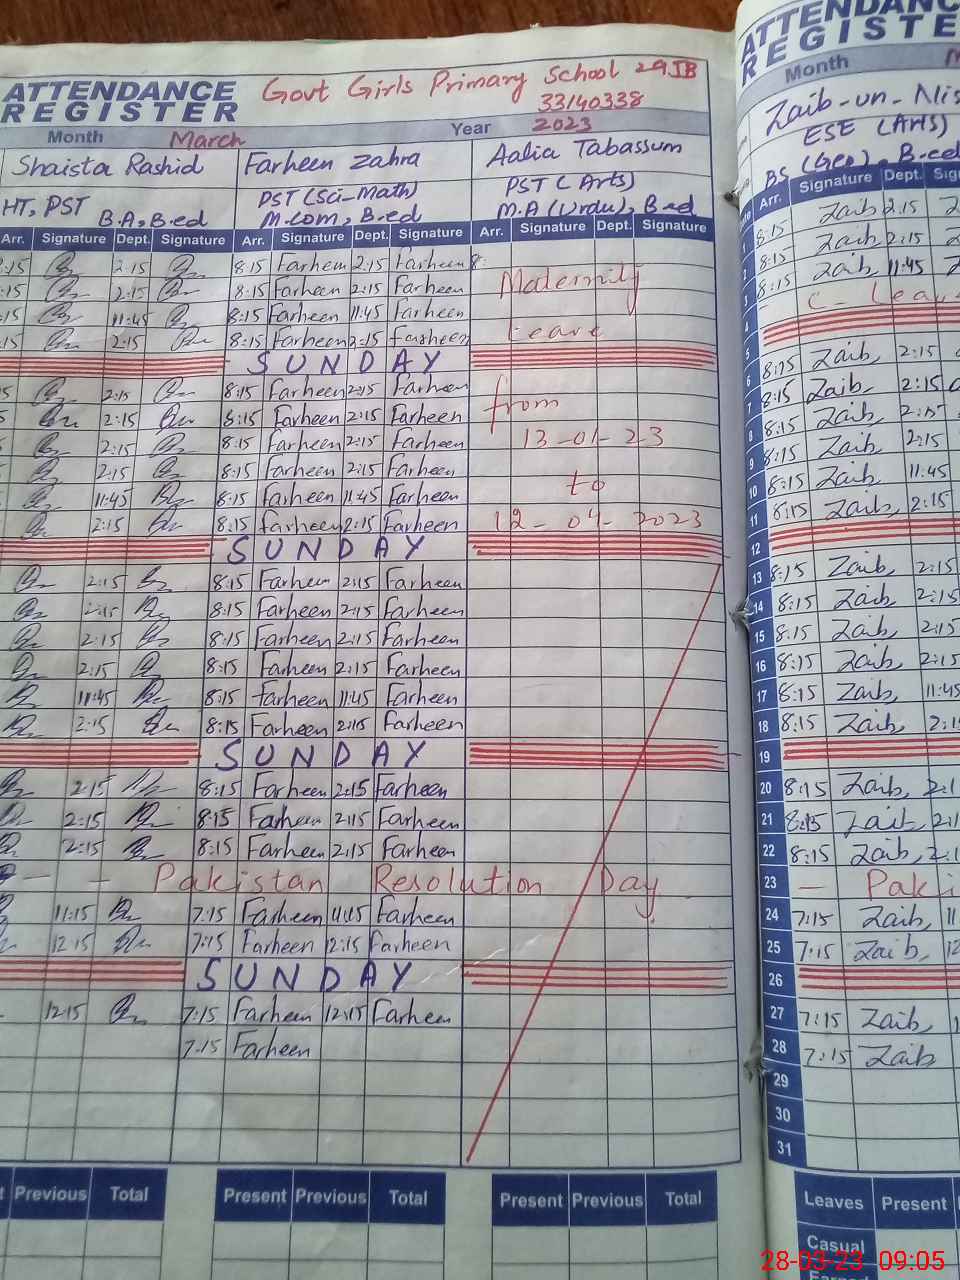 ATTENDANCE REGISTER
Govt Girls Primary School 29JB
33140338
Month March Year 2023
Shaista Rashid Farheen Zahra Aalia Tabassum
HT, PST B.A, B.ed PST (Sci-Math) M.com, B.ed PST (Arts) M.A (Urdu), B.ed
Arr. Signature Dept. Signature Arr. Signature Dept. Signature Arr. Signature Dept. Signature
2:15 8:15 Farheen 2:15 Farheen 8: Maternity
2:15 8:15 Farheen 2:15 Farheen
11:45 8:15 Farheen 11:45 Farheen Leave
2:15 8:15 Farheen 2:15 Farheen
SUNDAY
2:15 8:15 Farheen 2:15 Farheen from
2:15 8:15 Farheen 2:15 Farheen
2:15 8:15 Farheen 2:15 Farheen 13-01-23
2:15 8:15 Farheen 2:15 Farheen to
11:45 8:15 Farheen 11:45 Farheen
2:15 8:15 Farheen 2:15 Farheen 12-04-2023
SUNDAY
2:15 8:15 Farheen 2:15 Farheen
2:15 8:15 Farheen 2:15 Farheen
2:15 8:15 Farheen 2:15 Farheen
2:15 8:15 Farheen 2:15 Farheen
11:45 8:15 Farheen 11:45 Farheen
2:15 8:15 Farheen 2:15 Farheen
SUNDAY
2:15 8:15 Farheen 2:15 Farheen
2:15 8:15 Farheen 2:15 Farheen
2:15 8:15 Farheen 2:15 Farheen
Pakistan Resolution Day
11:15 7:15 Farheen 11:15 Farheen
12:15 7:15 Farheen 12:15 Farheen
SUNDAY
12:15 7:15 Farheen 12:15 Farheen
7:15 Farheen
Previous Total Present Previous Total Present Previous Total
ATTENDANC
REGISTE
Month
Zaib-un-Nis
ESE (Arts)
BS (Geo), B.ed
Arr. Signature Dept.
1 8:15 Zaib 2:15
2 8:15 Zaib 2:15
3 8:15 Zaib 11:45
4 C-Leav
5
6 8:15 Zaib 2:15
7 8:15 Zaib 2:15
8 8:15 Zaib 2:15
9 8:15 Zaib 2:15
10 8:15 Zaib 11:45
11 8:15 Zaib 2:15
12
13 8:15 Zaib 2:15
14 8:15 Zaib 2:15
15 8:15 Zaib 2:15
16 8:15 Zaib 2:15
17 8:15 Zaib 11:45
18 8:15 Zaib 2:1
19
20 8:15 Zaib 2:1
21 8:15 Zaib 2:1
22 8:15 Zaib 2:1
23 Paki
24 7:15 Zaib 11
25 7:15 Zaib 12
26
27 7:15 Zaib
28 7:15 Zaib
29
30
31
Leaves Present
Casual
Earned
28-03-23 09:05